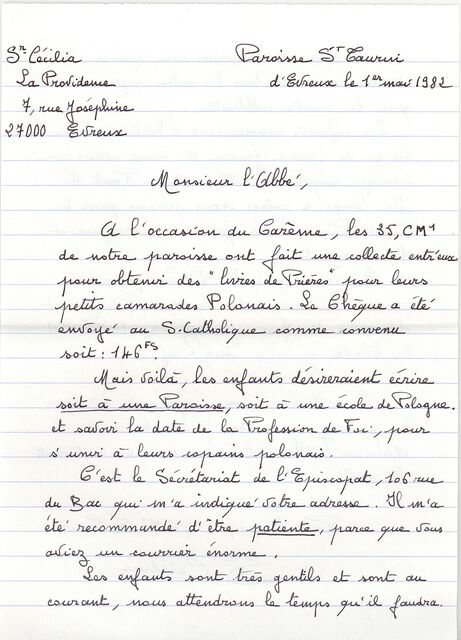 Sr Cécilia
La Providence
7, rue Joséphine
27000 Evreux
Paroisse St Taurin
d'Evreux le 1er mai 1982
Monsieur l'Abbé,
A l'occasion du Carême, les 35, CM1
de notre paroisse ont fait une collecte entr'eux
pour obtenir des "livres de Prières" pour leurs
petits camarades Polonais. Le Chèque a été
envoyé au S. Catholique comme convenu
soit : 146 FS.
Mais voilà, les enfants désireraient écrire
soit à une Paroisse, soit à une école de Pologne.
et savoir la date de la Profession de Foi, pour
s'unir à leurs copains polonais.
C'est le Sécrétariat de l'Episcopat, 106 rue
du Bac qui m'a indiqué votre adresse. Il m'a
été recommandé d'être patiente, parce que vous
aviez un courrier énorme.
Les enfants sont très gentils et sont au
courant, nous attendrons le temps qu'il faudra.